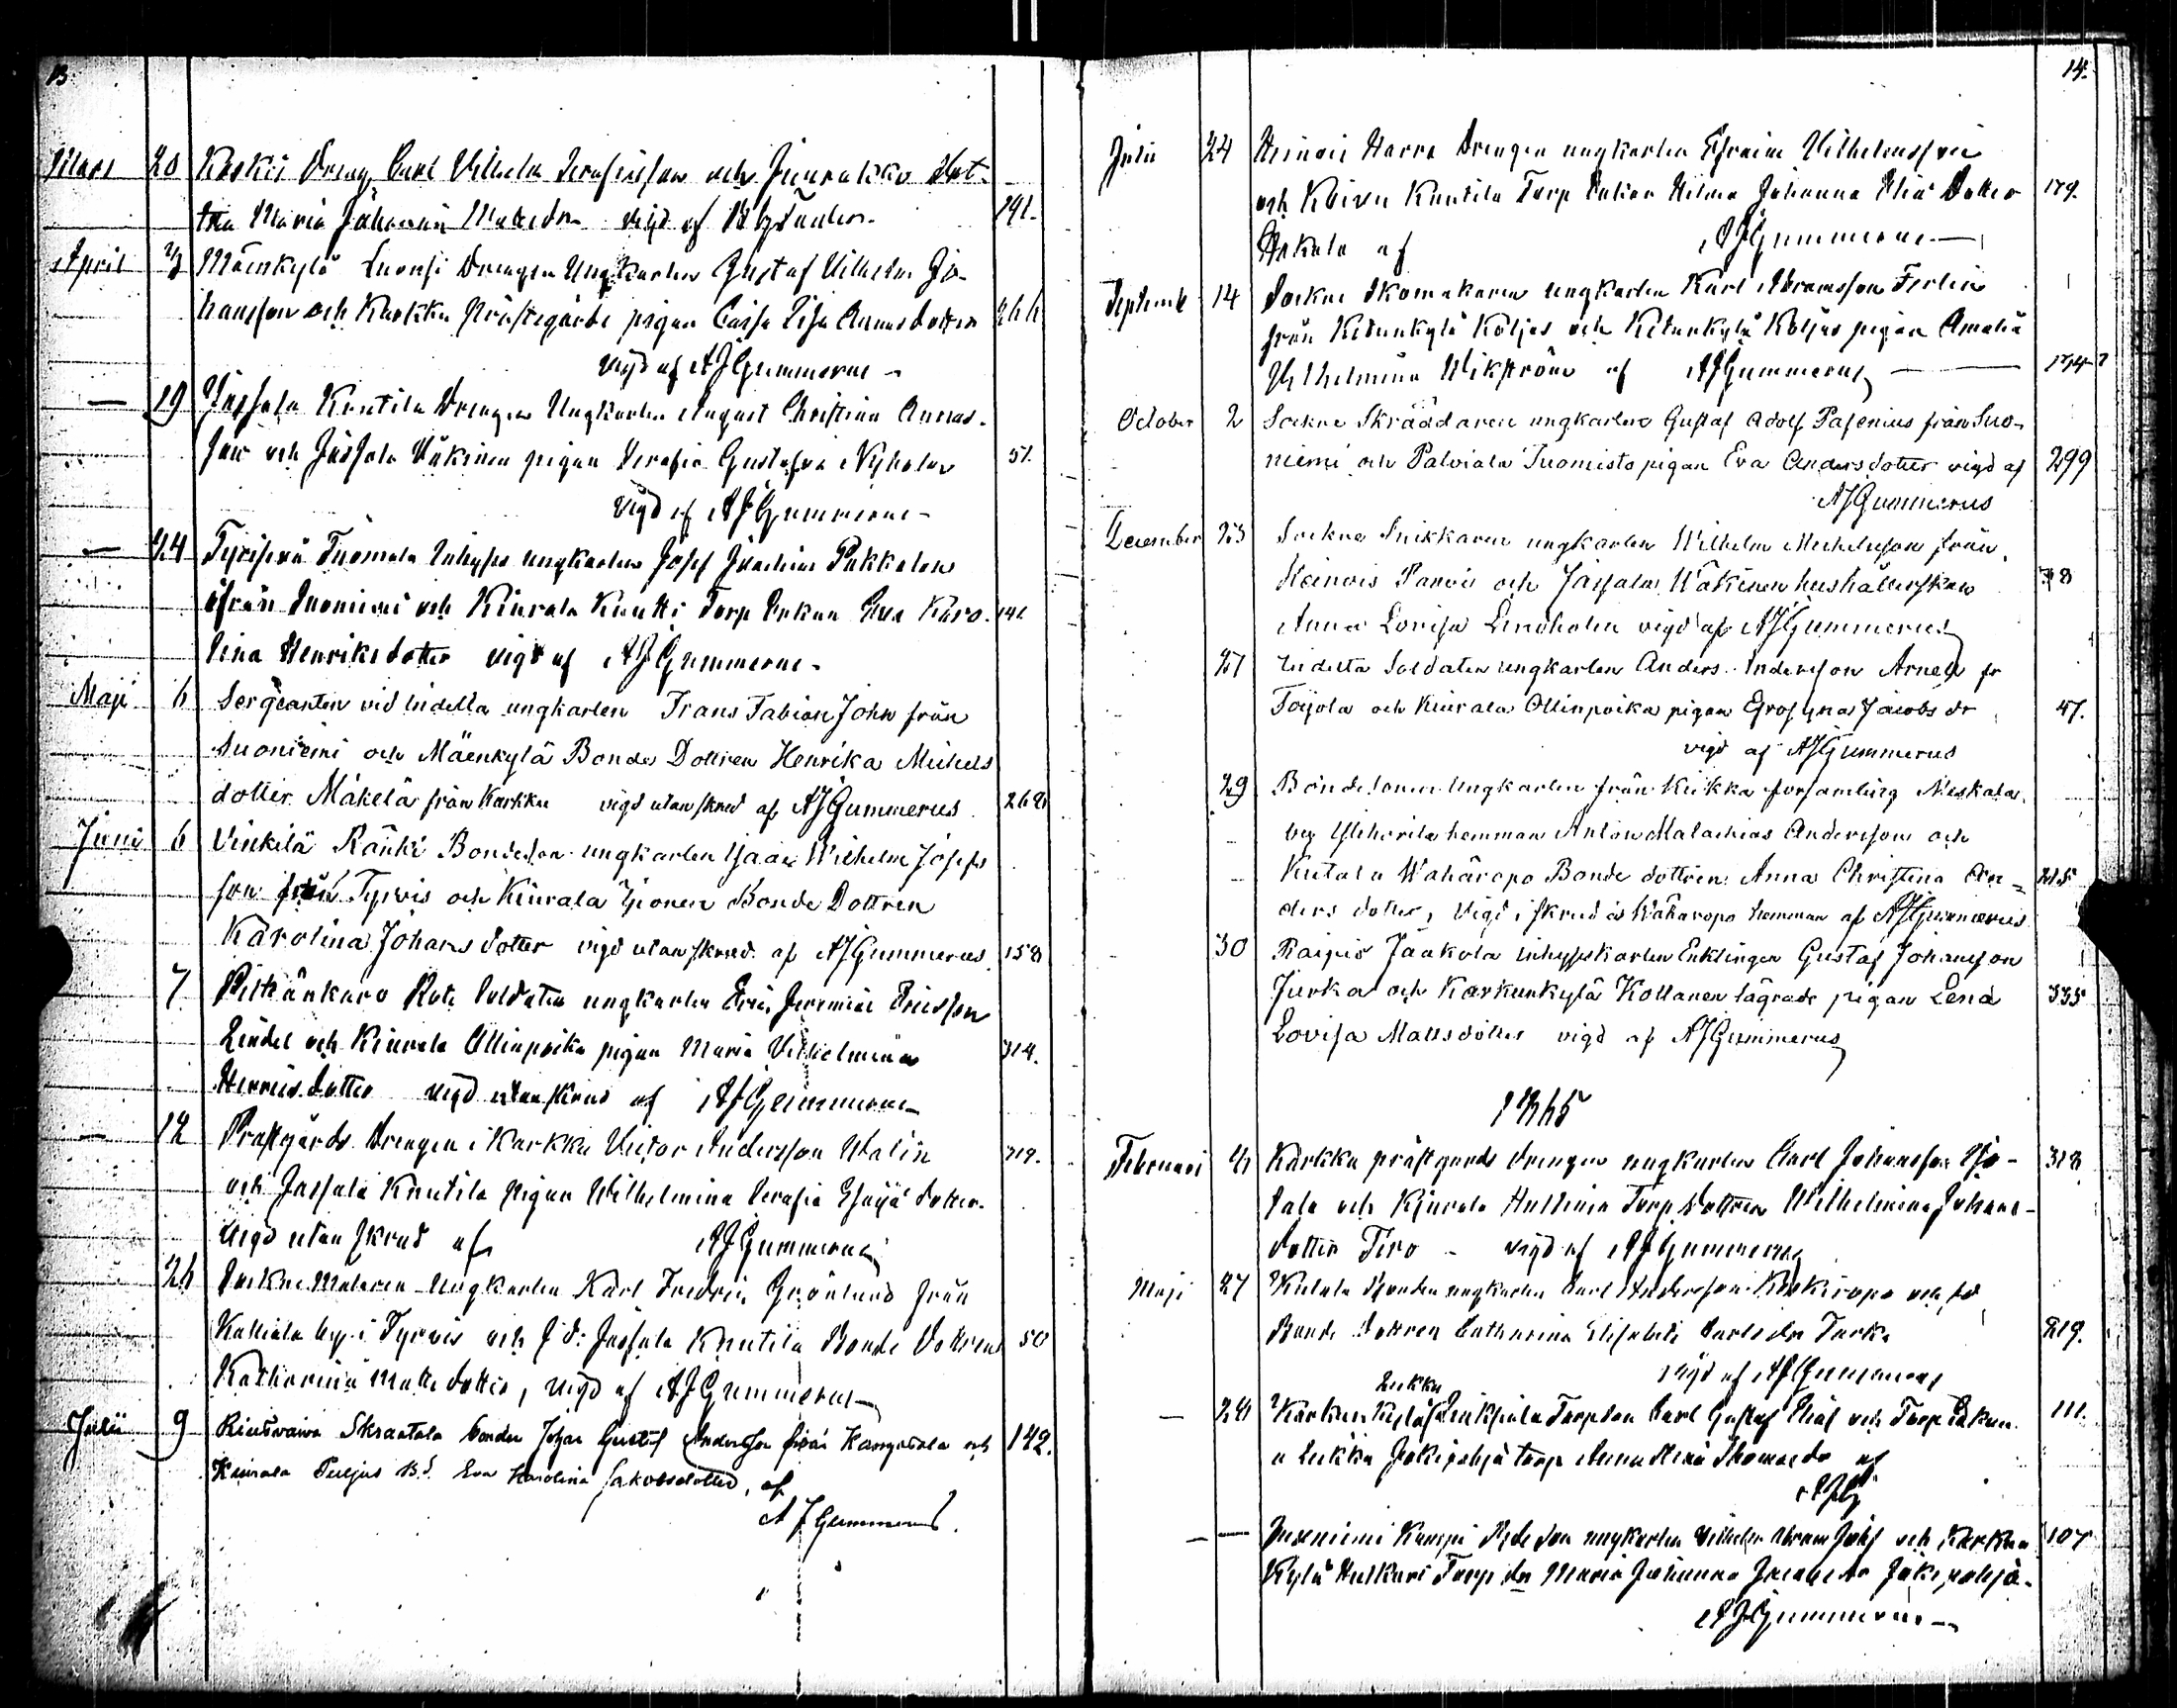 13
Mars 20 Koskis Dreng Carl Vilhelm Serafinsson och
tren Maria Johanna Matts dr vigd af 141.
April Mäenkylä Knorsi Drengen Ungkarlen Gustaf Vilhelm Jo-
hansson och Karkku Prästegårds pigan Caisa Lisa Annas dotter 266
vigd af AJGummerus
— 19 Jassala Knutila Drengen Ungkarlen August Christian Annas-
son och Jassala Wäkinen pigan Serafia Gustafva Nyholm 51.
vigd af AJGummerus
— 24 Tyrisevä Tuomala Inhyses ungkarlen Josef Joachim Pukkalen
ifrån Suoniemi och Kiurala Knutti Torp Enkan Eva Karo- 141
lina Henriksdotter vigd af AJGummerus
Maji 6 Sergeanten vid indelta ungkarlen Frans Fabian John från
Suoniemi och Mäenkylä Bonde Dottren Henrika Michels
dotter Mäkelä från Karkku vigd utan skrud af AJGummerus 262
Juni 6 Vinkilä Ränki Bondeson ungkarlen Isaac Wilhelm Josefs
son från Tyrvis och Kiurala Yionen Bonde Dottren
Karolina Johans dotter vigd utan skrud af AJGummerus 158
7 Pitkänkaro Rote Soldaten ungkarlen Eric Jeremias Ericsson
Lindel och Kiurala Ollinpoika pigan Maria Vilhelmina 314.
Henricsdotter vigd utan skrud af AJGummerus
— 12 Prästgårds Drengen i Karkku Victor Andersson Walin 319.
och Jassala Knutila pigan Wilhelmina Serafia Esajæ dotter
vigd utan skrud af AJGummerus
26 Sockne Målaren Ungkarlen Karl Fredric Grönlund från
Kalliala by i Tyrvis och Jassala Knutila Bonde Dottren 50
Katharina Matts dotter, vigd af AJGummerus
Julii 9 Riutvaiva Skraatala bonden Johan Gustaf Andersson från Kangasala och 142.
Kiurala Puljus B.d. Eva Karolina Jakobsdotter, af
AJGummerus.
14.
Julii 24 Heinois Harra Drengen ungkarlen Efraim Vilhelmsson
och Koivu Knutila Torp Enkan Helena Johanna Eliæ Dotter 179.
af AJGummerus
Septemb 14 Sockne Skomakaren ungkarlen Karl Abramsson Ferlin
från Ketunkylä Köljas och Ketunkylä Köljas pigan Amalia
Vilhelmina Wikström af AJGummerus 174
October 2 Sockne Skräddaren ungkarlen Gustaf Adolf Pasenius från Suo-
niemi och Palviala Tuomisto pigan Eva Andersdotter vigd af 299
AJGummerus
December 23 Sockne Snikkaren ungkarlen Wilhelm Michelsson från
Heinois Parvis och Jassala Wäkinen hushållerskan 38
Anna Lovisa Lindholm vigd af AJGummerus
27 Indelta Soldaten ungkarlen Anders Andersson Arneld fr
Toijola och Kiurala Ollinpoika pigan Efrosyna Jacobs dr 47.
vigd af AJGummerus
29 Bondesonen Ungkarlen från Kiikka församling Meskala
by Ylihorila hemman Anton Malachias Andersson och
Kutala Wahäropo Bonde dottren Anna Christina An= 215
ders dotter, Vigd i skrud å Wähäropo hemman af AJGummerus
30 Raipis Jaakola inhyseskarlen Enklingen Gustaf Johansson
Jurka och Karkunkylä Kollanen lägrade pigan Lena 335
Lovisa Mattsdotter vigd af AJGummerus
1865
Februari Karkku prästgårds drengen ungkarlen Carl Johansson 318
tala och Kiurala Huttinen Torp Dottren Wilhelmina Johans-
dotter Tiro - vigd af AJGummerus
Maji 27 Kutala Bonden ungkarlen Carl Andersson Koskiropo och
Bonde Dottren Catharina Elisabeth Carls dr Turka 219.
vigd af AJGummerus
Lukku
— 28 Karkun Kylä Torpson Carl Gustaf Elias och Torp Enkan 111.
a Lukku Jokipohja torp Anna Stina Thomas dr af
AJG
— — Suoniemi Kauppi ungkarlen Vilhelm Abram och Karkun 107
Kylä Huskari Torp dr Maria Johanna Jokipohja.
AJGummerus